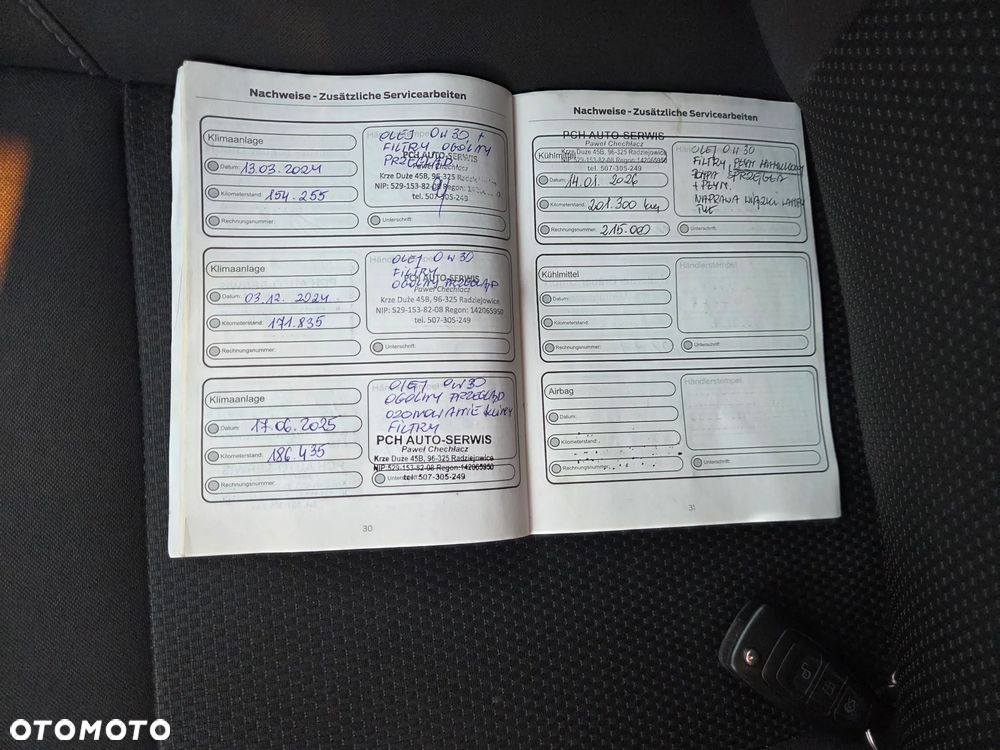 Nachweise - Zusätzliche Servicearbeiten
Klimaanlage
Datum: 13.03.2024
Kilometerstand: 154.255
Rechnungsnummer:
OLEJ 0W30 +
FILTRY OGÓLNY
PRZEGLĄD
PCH AUTO-SERWIS
Paweł Chechłacz
Krze Duże 45B, 96-325 Radziejowice
NIP: 529-153-82-08 Regon:
tel. 507-305-249
Unterschrift:
Klimaanlage
Datum: 03.12.2024
Kilometerstand: 171.835
Rechnungsnummer:
OLEJ 0W30
FILTRY
OGÓLNY PRZEGLĄD
PCH AUTO-SERWIS
Paweł Chechłacz
Krze Duże 45B, 96-325 Radziejowice
NIP: 529-153-82-08 Regon: 142065950
tel. 507-305-249
Unterschrift:
Klimaanlage
Datum: 17.06.2025
Kilometerstand: 186.435
Rechnungsnummer:
OLEJ 0W30
OGÓLNY PRZEGLĄD
OZONOWANIE KLIMY
FILTRY
PCH AUTO-SERWIS
Paweł Chechłacz
Krze Duże 45B, 96-325 Radziejowice
NIP: 529-153-82-08 Regon: 142065950
tel. 507-305-249
30
Nachweise - Zusätzliche Servicearbeiten
PCH AUTO-SERWIS
Paweł Chechłacz
Krze Duże 45B, 96-325 Radziejowice
NIP: 529-153-82-08 Regon: 142065950
tel. 507-305-249
Kühlmittel
Datum: 14.01.2026
Kilometerstand: 201.300 km
Rechnungsnummer: 215.000
OLEJ 0W30
FILTRY, PŁYN HAMULCOWY
POMPA SPRZĘGŁA
+ PŁYN.
NAPRAWA WIĄZKI LAMPY
TYŁ
Unterschrift:
Kühlmittel
Datum:
Kilometerstand:
Rechnungsnummer:
Händlerstempel
Unterschrift:
Airbag
Datum:
Kilometerstand:
Rechnungsnummer:
Händlerstempel
Unterschrift:
31
OTOMOTO